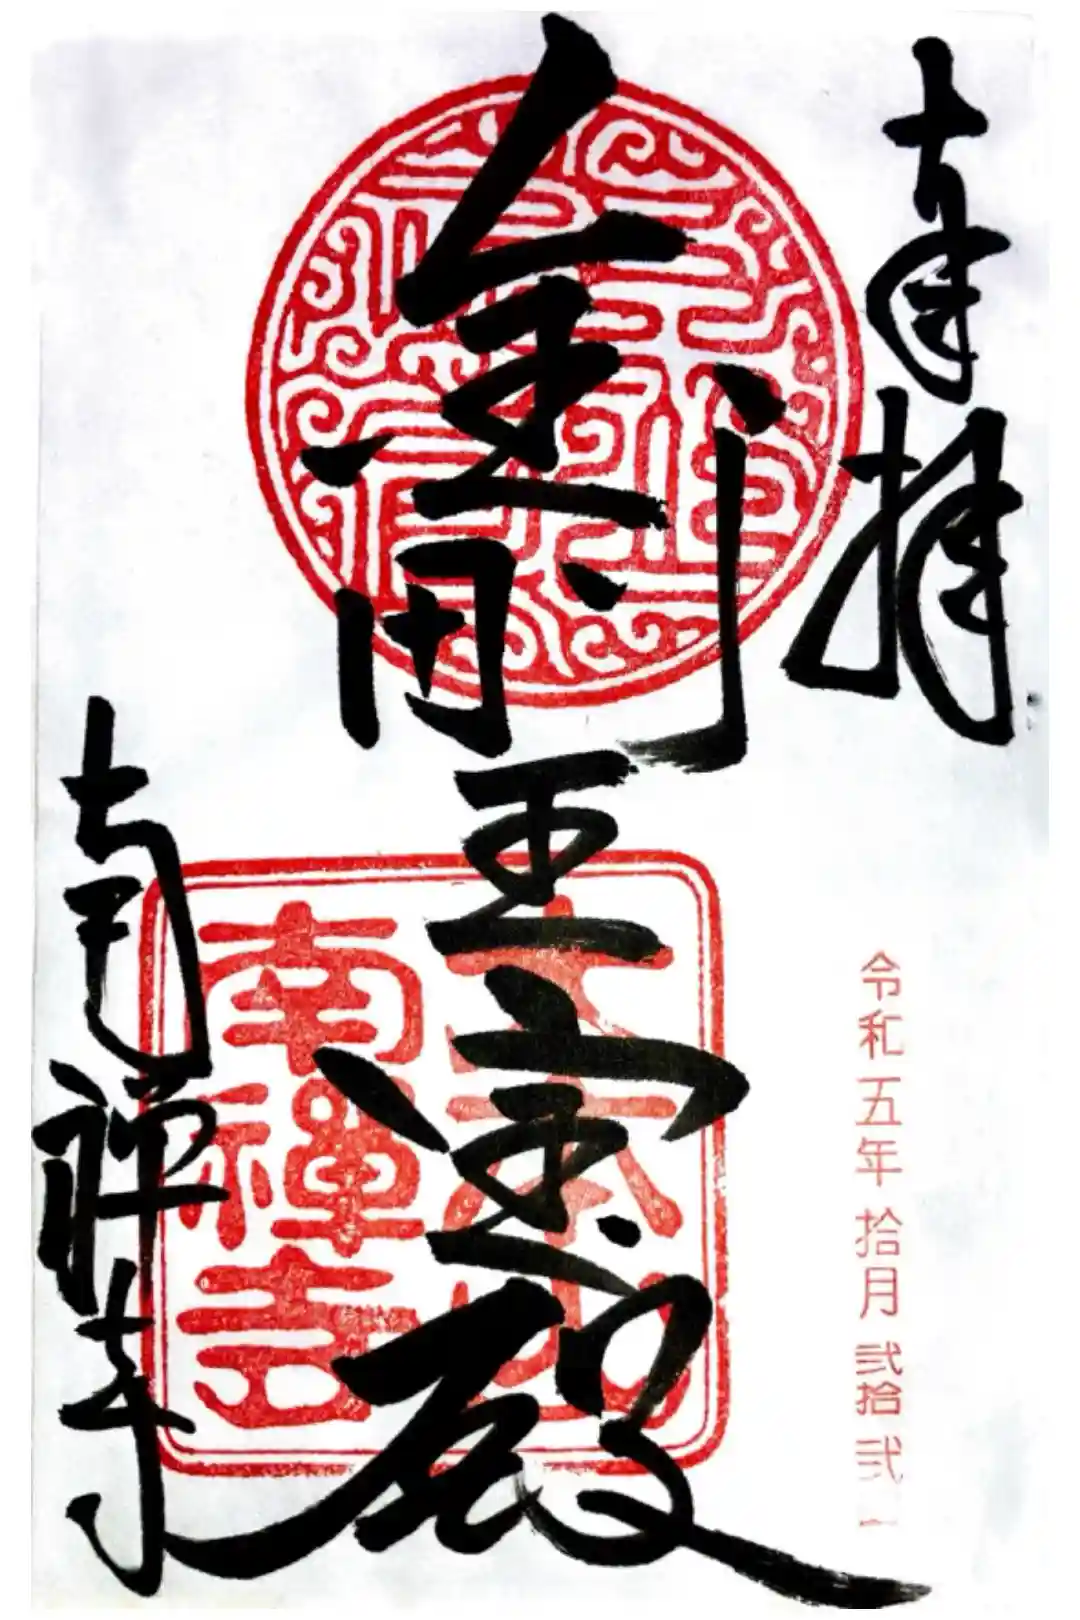 奉拝
令和五年拾月弐拾弐
金剛王宝殿
大本山
南禪寺
南禅寺